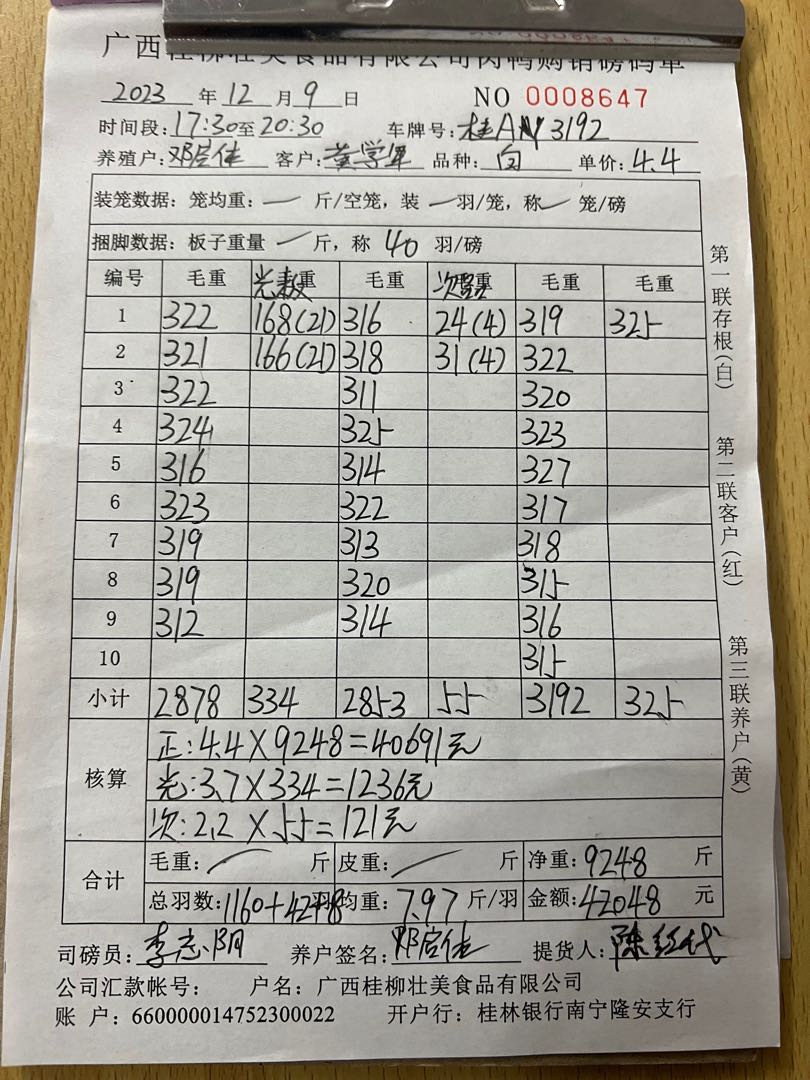 广西桂柳壮美食品有限公司肉鸭购销磅码单
2023 年 12 月 9 日 NO 0008647
时间段:17:30至20:30 车牌号:桂A 3192
养殖户:邓启佳 客户:黄学军 品种:白 单价:4.4
装笼数据:笼均重:一 斤/空笼,装 一 羽/笼,称 一 笼/磅
捆脚数据:板子重量 一 斤,称 40 羽/磅
编号 毛重 光 重 毛重 次 重 毛重 毛重
1 322 168(21) 316 24(4) 319 325
2 321 166(21) 318 31(4) 322
3 322 311 320
4 324 325 323
5 316 314 327
6 323 322 317
7 319 313 318
8 319 320 315
9 312 314 316
10 315
小计 2878 334 2853 55 3192 325
核算
正:4.4×9248=40691元
光:3.7×334=1236元
次:2.2×55=121元
合计
毛重: 斤 皮重: 斤 净重:9248 斤
总羽数:1160+42+8羽 均重:7.97 斤/羽 金额:42048 元
司磅员:李志阴 养户签名:邓启佳 提货人:陈红代
公司汇款帐号: 户名:广西桂柳壮美食品有限公司
账 户:660000014752300022 开户行:桂林银行南宁隆安支行
第一联存根(白)
第二联客户(红)
第三联养户(黄)